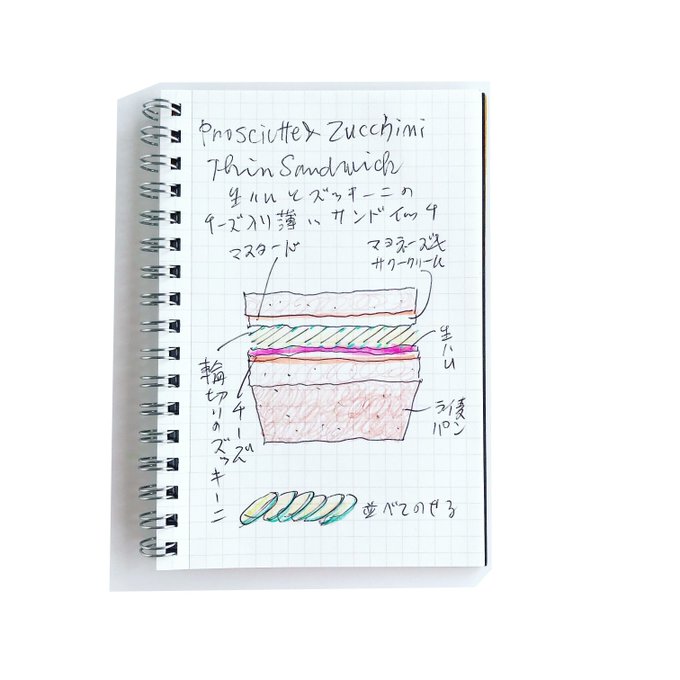 Prosciutte & Zucchini
Thin Sandwich
生ハムとズッキーニの
チーズ入り薄いサンドイッチ
マスタード
マヨネーズ&
サワークリーム
生ハム
輪切りのズッキーニ
チーズ
ライ麦
パン
並べてのせる